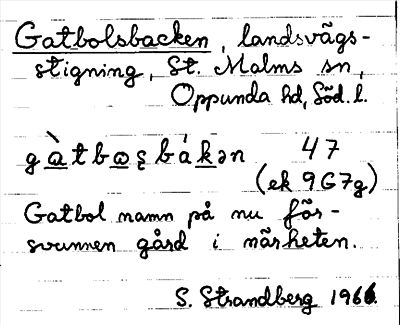 Gatbolsbacken, landsvägs-
stigning, St. Malms sn,
Oppunda hd, Söd. l.
gàtbɷʂbákən 47
(ek 9G7g)
Gatbol namn på nu för-
svunnen gård i närheten.
S. Strandberg 1966.